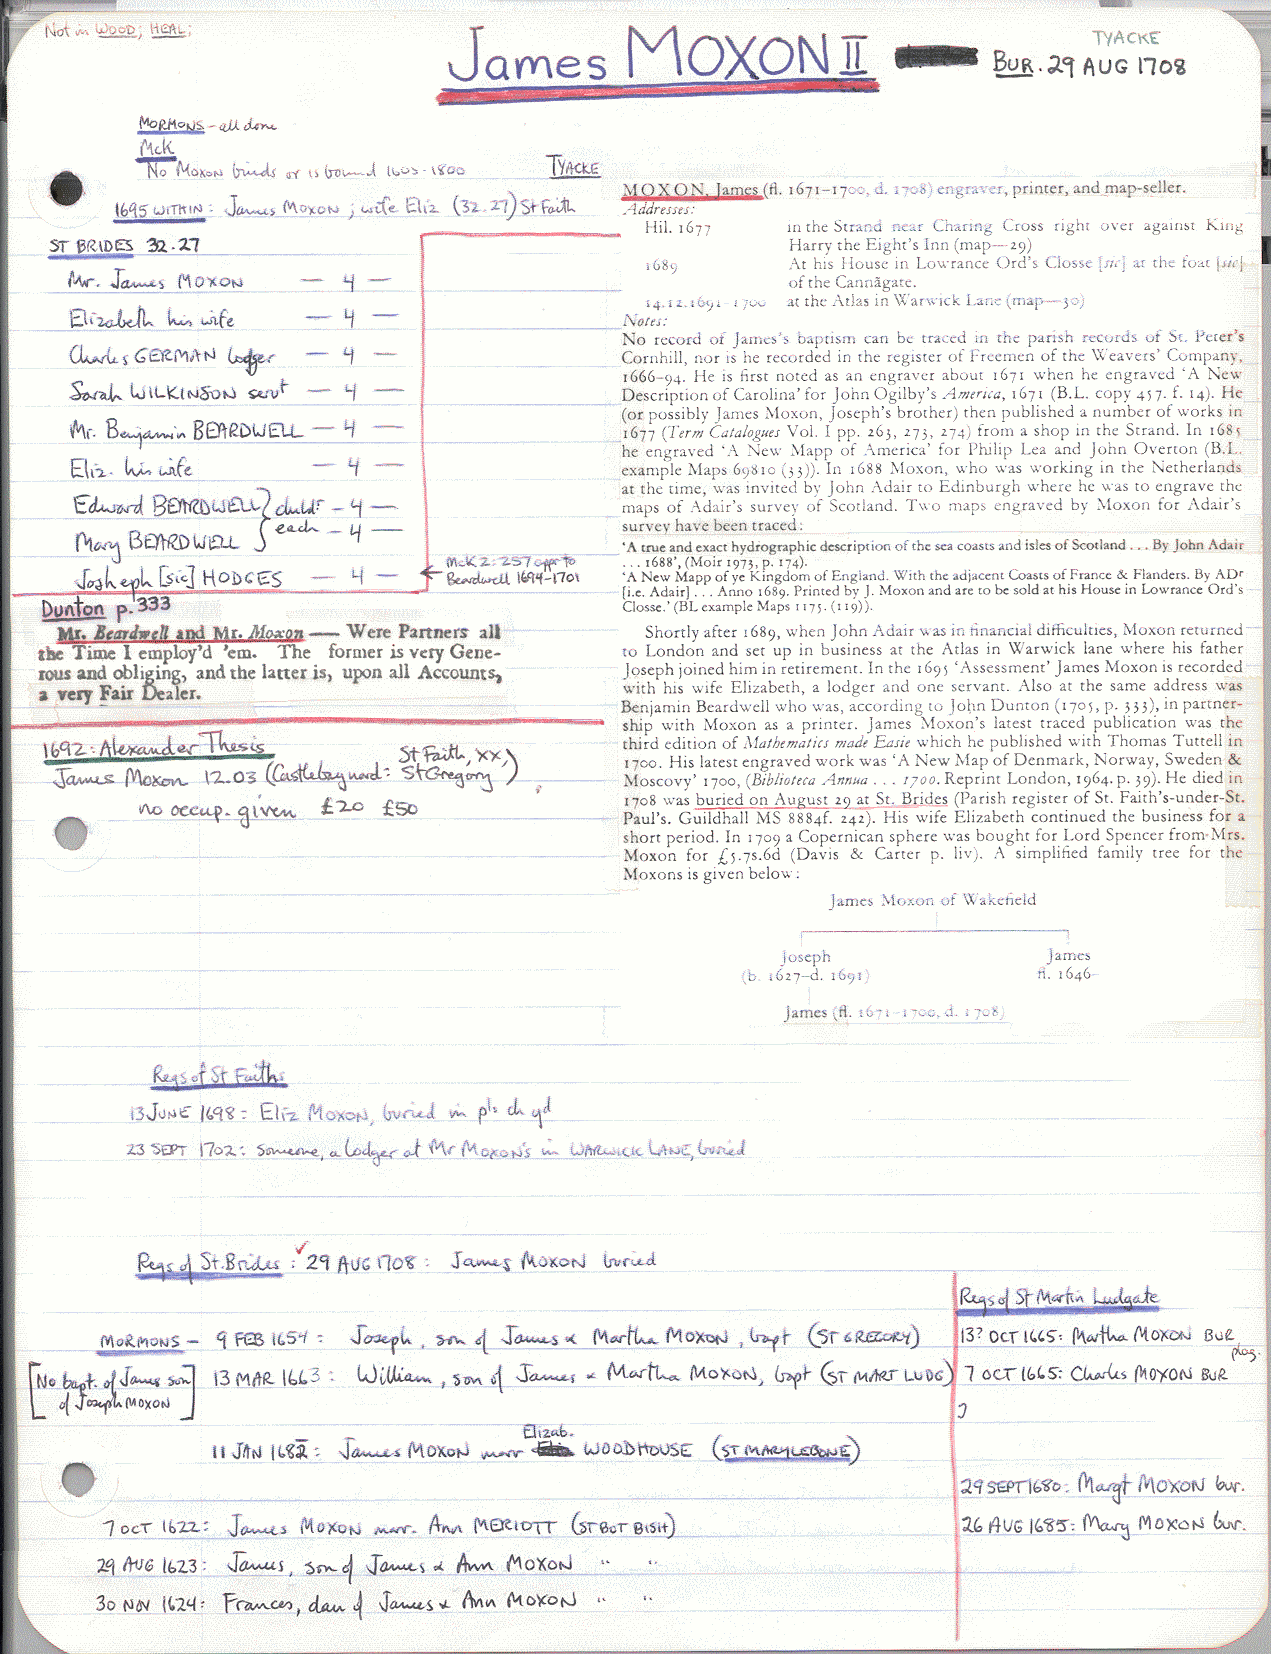 Not in WOOD; HEAL;
James MOXON II
TYACKE
BUR. 29 AUG 1708
MORMONS - all done
McK
No Moxon binds or is bound 1605-1800
1695 WITHIN: James MOXON; wife Eliz (32.27) St Faith
ST BRIDES 32.27
Mr. James MOXON — 4 —
Elizabeth his wife — 4 —
Charles GERMAN lodger — 4 —
Sarah WILKINSON servt — 4 —
Mr. Benjamin BEARDWELL — 4 —
Eliz. his wife — 4 —
Edward BEARDWELL } childr - 4 —
Mary BEARDWELL } each - 4 —
Josheph [sic] HODGES — 4 —
McK 2: 257 appr to
Beardwell 1694-1701
Dunton p. 333
Mr. Beardwell and Mr. Moxon — Were Partners all
the Time I employ'd 'em. The former is very Gene-
rous and obliging, and the latter is, upon all Accounts,
a very Fair Dealer.
1692: Alexander Thesis
James Moxon 12.03 (Castlebaynard: St Faith, xx,
St Gregory)
no occup. given £20 £50
TYACKE
MOXON, James (fl. 1671–1700, d. 1708) engraver, printer, and map-seller.
Addresses:
Hil. 1677 in the Strand near Charing Cross right over against King
Harry the Eight's Inn (map—29)
1689 At his House in Lowrance Ord's Closse [sic] at the foat [sic]
of the Cannagate.
14.12.1691–1700 at the Atlas in Warwick Lane (map—30)
Notes:
No record of James's baptism can be traced in the parish records of St. Peter's
Cornhill, nor is he recorded in the register of Freemen of the Weavers' Company,
1666–94. He is first noted as an engraver about 1671 when he engraved 'A New
Description of Carolina' for John Ogilby's America, 1671 (B.L. copy 457. f. 14). He
(or possibly James Moxon, Joseph's brother) then published a number of works in
1677 (Term Catalogues Vol. I pp. 263, 273, 274) from a shop in the Strand. In 1685
he engraved 'A New Mapp of America' for Philip Lea and John Overton (B.L.
example Maps 69810 (33)). In 1688 Moxon, who was working in the Netherlands
at the time, was invited by John Adair to Edinburgh where he was to engrave the
maps of Adair's survey of Scotland. Two maps engraved by Moxon for Adair's
survey have been traced:
'A true and exact hydrographic description of the sea coasts and isles of Scotland . . . By John Adair
. . . 1688', (Moir 1973, p. 174).
'A New Mapp of ye Kingdom of England. With the adjacent Coasts of France & Flanders. By ADr
[i.e. Adair] . . . Anno 1689. Printed by J. Moxon and are to be sold at his House in Lowrance Ord's
Closse.' (BL example Maps 1175. (119)).
Shortly after 1689, when John Adair was in financial difficulties, Moxon returned
to London and set up in business at the Atlas in Warwick lane where his father
Joseph joined him in retirement. In the 1695 'Assessment' James Moxon is recorded
with his wife Elizabeth, a lodger and one servant. Also at the same address was
Benjamin Beardwell who was, according to John Dunton (1705, p. 333), in partner-
ship with Moxon as a printer. James Moxon's latest traced publication was the
third edition of Mathematics made Easie which he published with Thomas Tuttell in
1700. His latest engraved work was 'A New Map of Denmark, Norway, Sweden &
Moscovy' 1700, (Biblioteca Annua . . . 1700. Reprint London, 1964. p. 39). He died in
1708 was buried on August 29 at St. Brides (Parish register of St. Faith's-under-St.
Paul's. Guildhall MS 8884f. 242). His wife Elizabeth continued the business for a
short period. In 1709 a Copernican sphere was bought for Lord Spencer from Mrs.
Moxon for £5.7s.6d (Davis & Carter p. liv). A simplified family tree for the
Moxons is given below:
James Moxon of Wakefield
Joseph James
(b. 1627–d. 1691) fl. 1646–
James (fl. 1671–1700, d. 1708)
Regs of St Faiths
13 JUNE 1698: Eliz MOXON, buried in pls ch yd
23 SEPT 1702: someone, a lodger at Mr MOXON's in WARWICK LANE, buried
Regs of St. Brides: 29 AUG 1708: James MOXON buried
MORMONS - 9 FEB 1654: Joseph, son of James & Martha MOXON, bapt (ST GREGORY)
[No bapt. of James son
of Joseph MOXON]
13 MAR 1663: William, son of James & Martha MOXON, bapt (ST MART LUDG)
11 JAN 1682: James MOXON marr Elizab. WOODHOUSE (ST MARYLEBONE)
7 OCT 1622: James MOXON marr. Ann MERIOTT (ST BOT BISH)
29 AUG 1623: James, son of James & Ann MOXON " "
30 NOV 1624: Frances, dau of James & Ann MOXON " "
Regs of St Martin Ludgate
13? OCT 1665: Martha MOXON BUR
plag.
7 OCT 1665: Charles MOXON BUR
29 SEPT 1680: Margt MOXON bur.
26 AUG 1685: Mary MOXON bur.